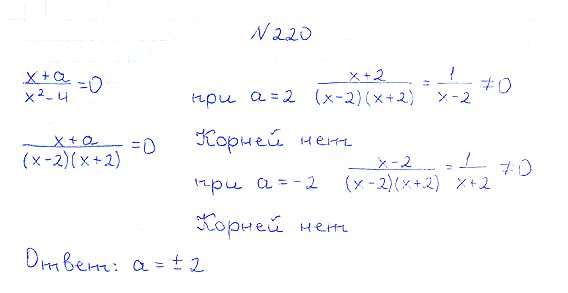 N220
(x+a)/(x²-4) = 0
при a=2 (x+2)/((x-2)(x+2)) = 1/(x-2) ≠ 0
(x+a)/((x-2)(x+2)) = 0
Корней нет
при a=-2 (x-2)/((x-2)(x+2)) = 1/(x+2) ≠ 0
Корней нет
Ответ: a = ±2